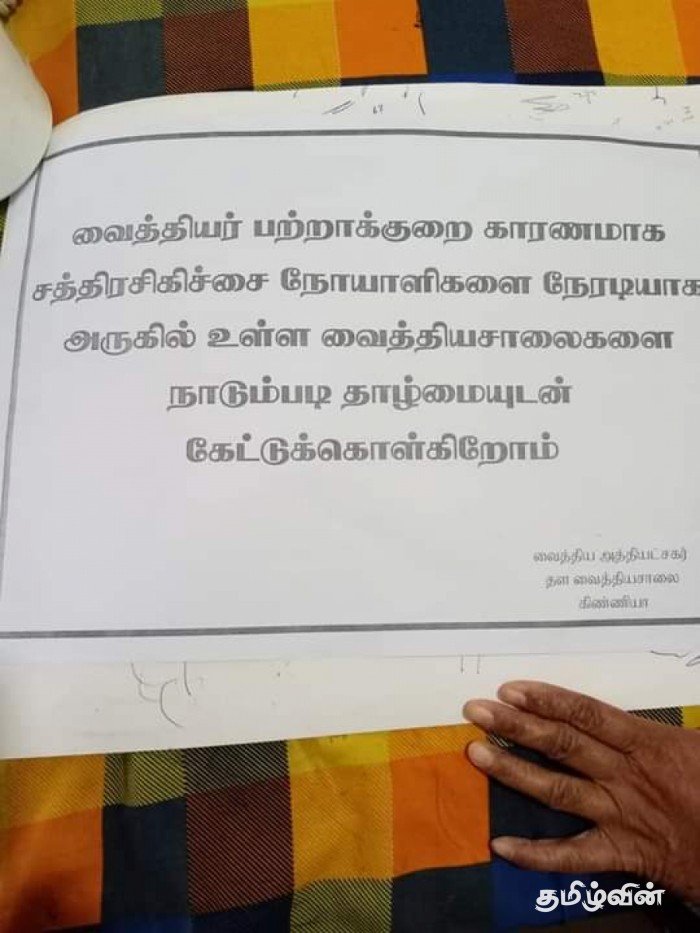 வைத்தியர் பற்றாக்குறை காரணமாக
சத்திரசிகிச்சை நோயாளிகளை நேரடியாக
அருகில் உள்ள வைத்தியசாலைகளை
நாடும்படி தாழ்மையுடன்
கேட்டுக்கொள்கிறோம்
வைத்திய அத்தியட்சகர்
தள வைத்தியசாலை
கிண்ணியா
தமிழ்வின்